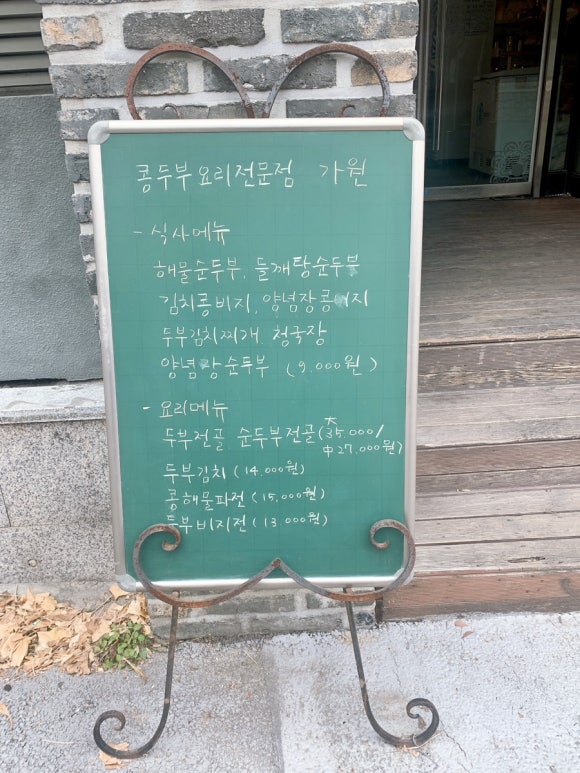 콩두부요리전문점 가원
- 식사메뉴
해물순두부, 들깨탕순두부
김치콩비지, 양념장콩비지
두부김치찌개, 청국장
양념장순두부 (9.000원)
- 요리메뉴
두부전골 순두부전골(大35.000/
中27.000원)
두부김치(14.000원)
콩해물파전(15.000원)
두부비지전(13.000원)